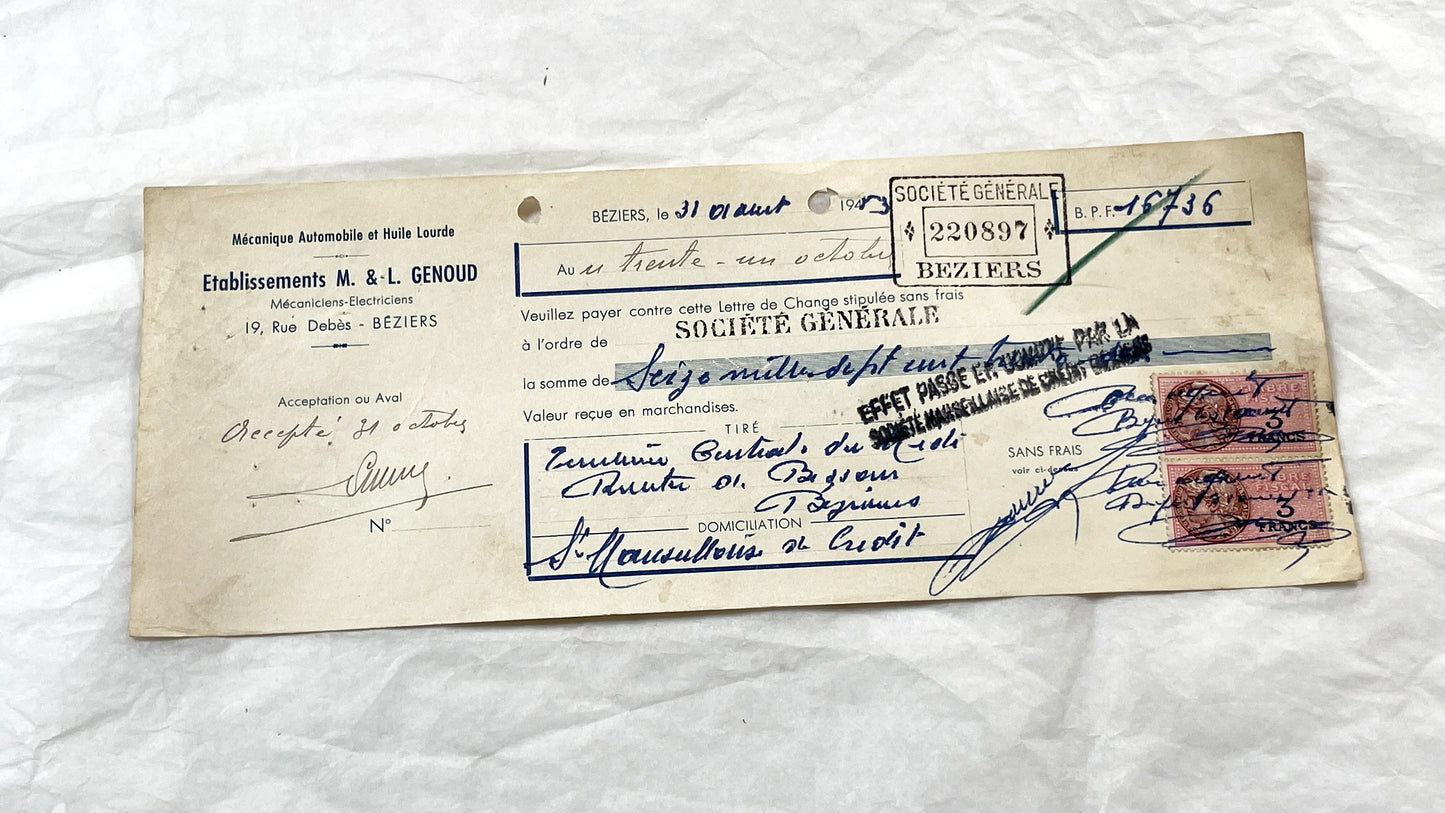 Mécanique Automobile et Huile Lourde
Etablissements M. & L. GENOUD
Mécaniciens-Electriciens
19, Rue Debès - BÉZIERS
Acceptation ou Aval
Accepté 31 octobre
N°
BÉZIERS, le 31 Août 1953
SOCIÉTÉ GÉNÉRALE
220897
BEZIERS
B. P. F. 16736
Au trente-un octobre
Veuillez payer contre cette Lettre de Change stipulée sans frais
à l'ordre de SOCIÉTÉ GÉNÉRALE
la somme de Seize mille sept cent
EFFET PASSÉ EN COMPTE PAR LA
SOCIÉTÉ MARSEILLAISE DE CRÉDIT BÉZIERS
Valeur reçue en marchandises.
TIRÉ
Centrale du Midi
Route de
Béziers
SANS FRAIS
voir ci-dessus
DOMICILIATION
Sté Marseillaise de Crédit
3
FRANCS
3
FRANCS